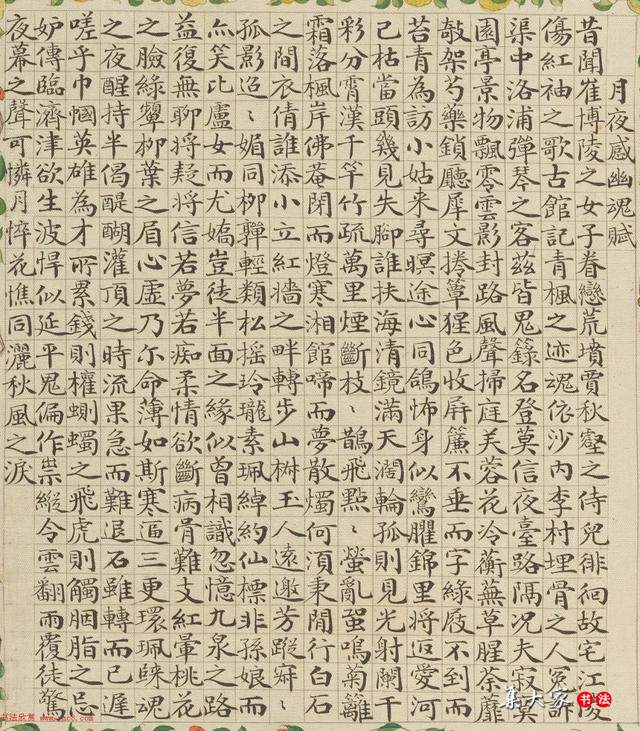 月夜感幽魂賦
昔聞崔博陵之女子眷戀荒墳賈秋壑之侍兒徘徊故宅江陵
傷紅袖之歌古館記青楓之迹魂依沙內李村埋骨之人冤訴
渠中洛浦彈琴之客茲皆鬼籙名登莫信夜臺路隔況夫寂莫
園亭景物飄零雲影封路風聲掃庭芙蓉花冷蘅蕪草腥荼蘼
敧架芍藥鎖廳犀文捲簟猩色收屏簾不垂而字綠屐不到而
苔青為訪小姑來尋暝途心同鴿怖身似鸞臞錦里將返愛河
已枯當頭幾見失腳誰扶海清鏡滿天濶輪孤則見光射闌干
彩分霄漢千竿竹疏萬里煙斷枝〻鵲飛點〻螢亂蛩鳴菊籬
霜落楓岸佛菴閉而燈寒湘館啼而夢散燭何須秉閒行白石
之間衣倩誰添小立紅墻之畔轉步山榭玉人遠邀芳蹤寂〻
孤影迢〻媚同柳嚲輕類松搖玲瓏素珮綽約仙標非孫娘而
亦笑比盧女而尤嬌豈徒半面之緣似曾相識忽憶九泉之路
益復無聊將疑將信若夢若痴柔情欲斷病骨難支紅暈桃花
之臉綠顰柳葉之眉心虛乃尔命薄如斯寒逼三更環珮睞魂
之夜醒持半偈醍醐灌頂之時流果急而難退石雖轉而已遲
嗟乎巾幗英雄為才所累錢則權蝴蠋之飛虎則觸胭脂之忌
妒傳臨濟津欲生波悍似延平鬼偏作祟縱令雲翻雨覆徒驚
夜幕之聲可憐月悴花憔同灑秋風之淚
集大家
书法
书法欣赏